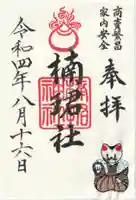 奉拝
商売繁昌
家内安全
楠珺社
令和四年八月十六日